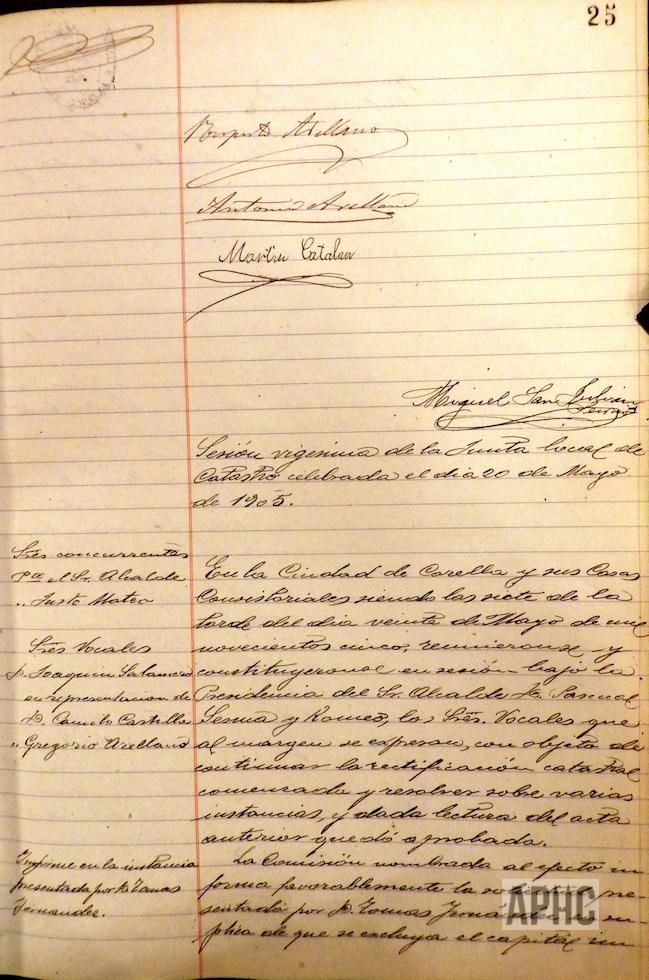 25
Ruperto Arellano
Antonio Arellano
Martin Catalan
Miguel San Julian
Sesión vigesima de la Junta local de
Catastro celebrada el dia 20 de Mayo
de 1905.
Sres concurrentes
Pte el Sr. Alcalde
" Justo Mateo
Sres Vocales
D. Joaquin Salamero
en representacion de
D. Camilo Castilla
" Gregorio Arellano
En la Ciudad de Corella y sus Casas
Consistoriales siendo las siete de la
tarde del dia veinte de Mayo de mil
novecientos cinco, reunieronse y
constituyeronse en sesión bajo la
Presidencia del Sr. Alcalde D. Pascual
Sesma y Romeo, los Sres. Vocales que
al margen se expresan, con objeto de
continuar la rectificación catastral
comenzada y resolver sobre varias
instancias, y dada lectura del acta
anterior quedó aprobada.
Informe en la instancia
presentada por D. Tomas
Fernandez.
La Comisión nombrada al efecto in
forma favorablemente la pre
sentada por D. Tomas Fernández su
plica de que se excluya el capital im
APHC